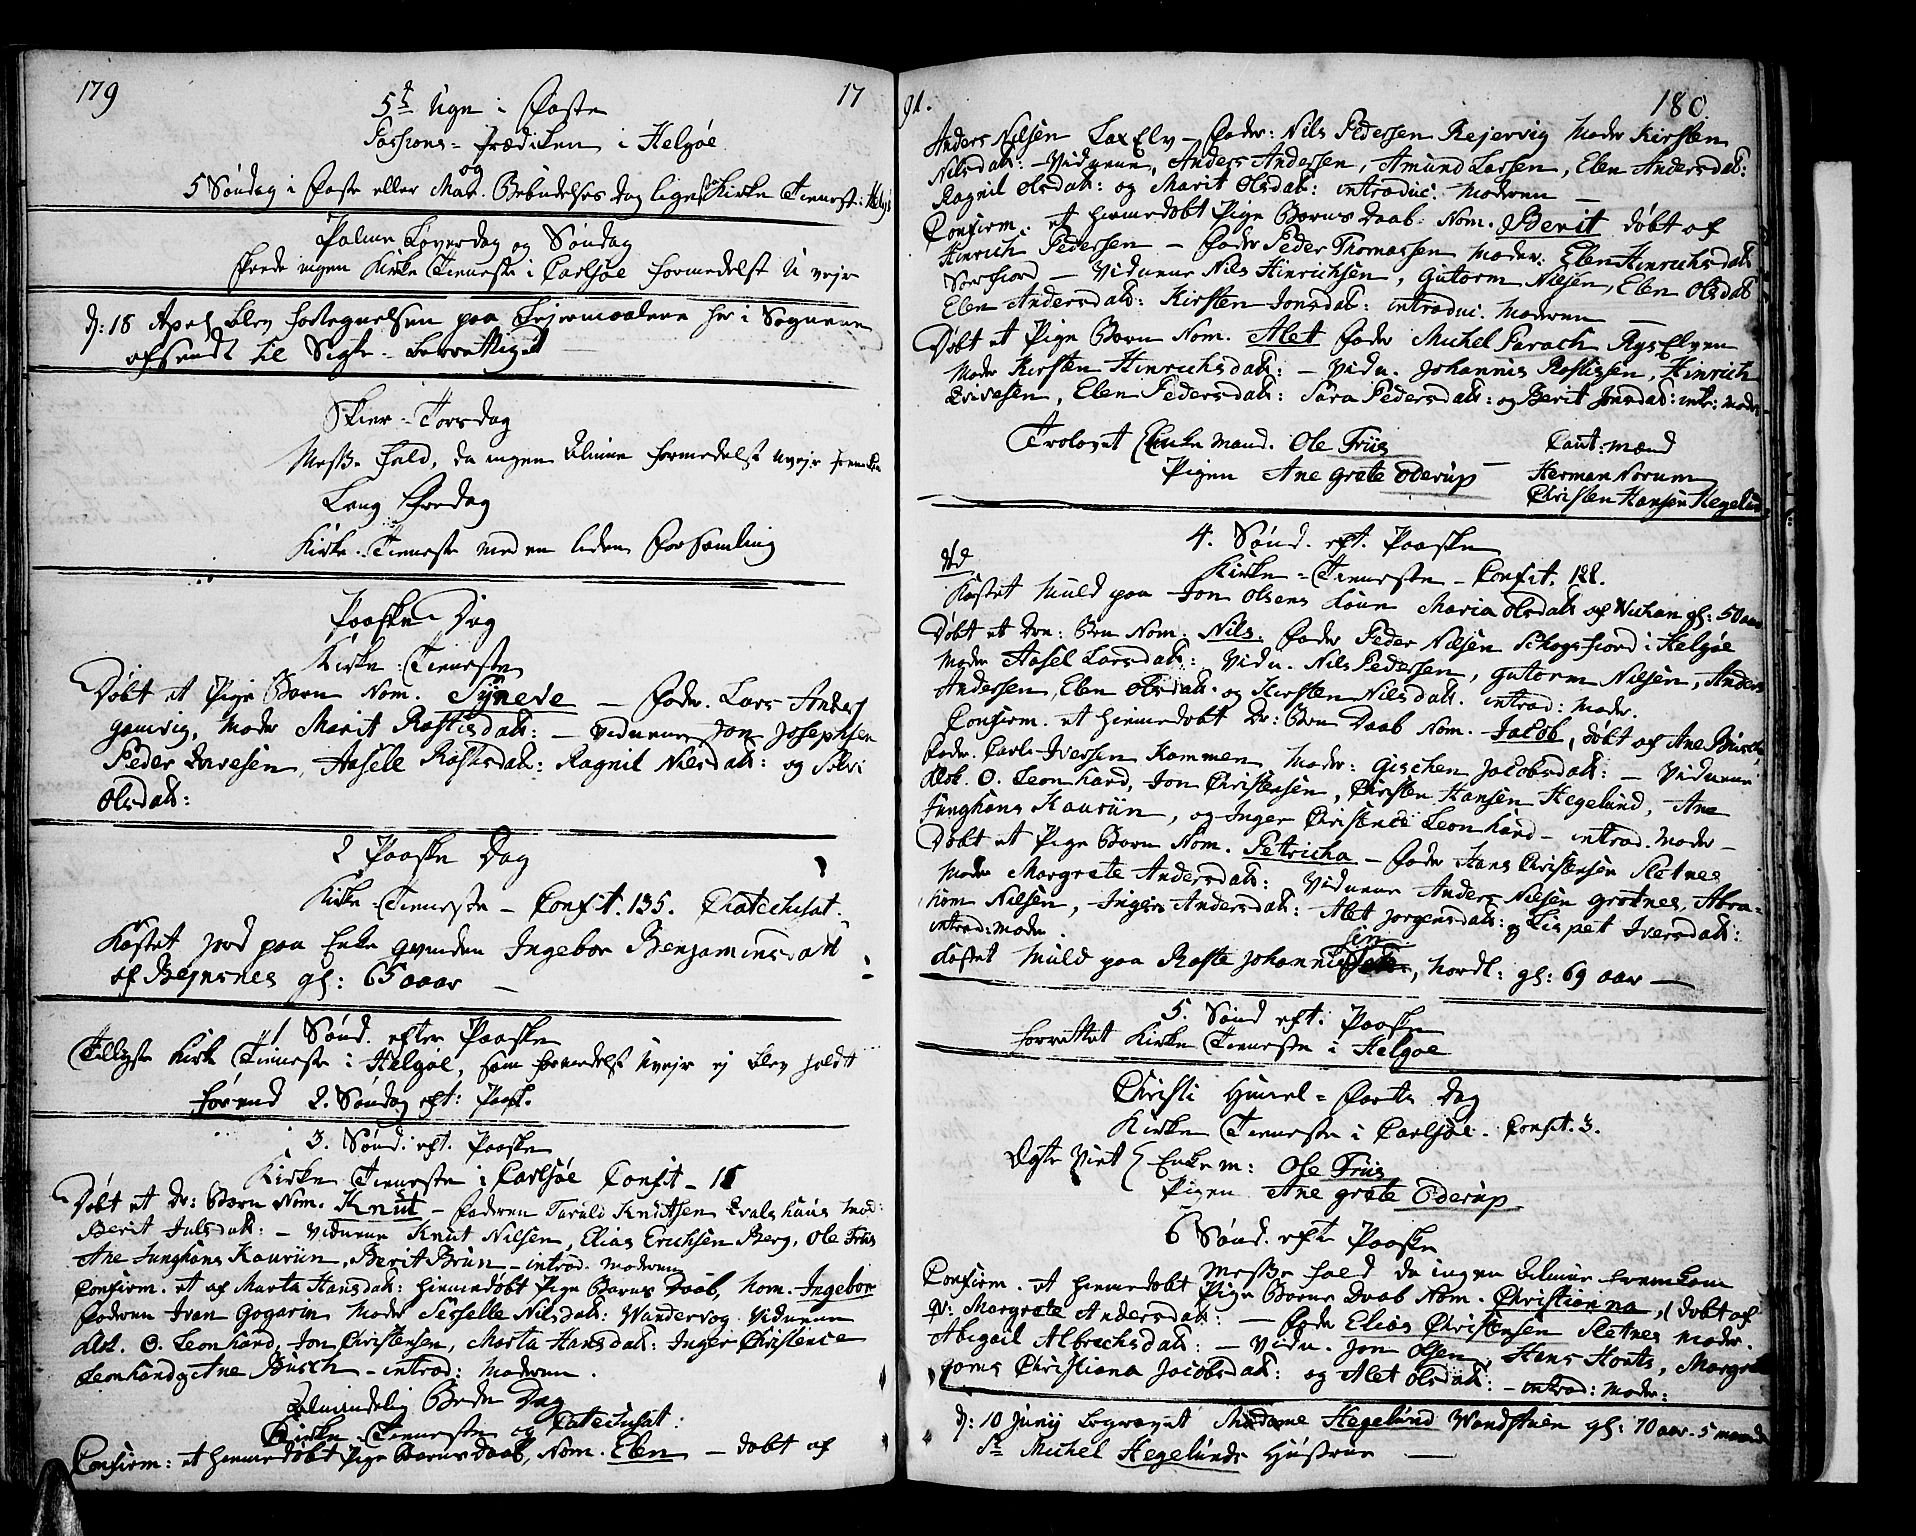 179
17
5te Uge i Faste
Passions-Prædiken i Helgøe
og
5 Søndag i Faste eller Mar. Bebudelses Dag ligeså Kirke Tieneste: Helg:
Palme Løverdag og Søndag
skede ingen Kirke Tieneste i Carlsøe formedelst U vejr
d: 18 Apl blev fortegnelsen paa Lejermaalene her i Sognene
afsendt til
Skier-Torsdag
Messe fald, da ingen Almue formedelst Uvejr
Lang Fredag
Kirke-Tieneste med en liden Forsamling
Paaske Dag
Kirke-Tieneste
Døbt et Pige Barn Nom. Syneve — Fader. Lars Anders
Gamvig, Moder Marit Rastisdatt: — Vidnerne Jon Josephsen
Peder Iversen, Aasele Rastisdatt: Ragnil Nilsdatt: og Silvi
Olsdatt:
2 Paaske Dag
Kirke-Tieneste — Confit. 135. Catechisat.
Kastet jord paa Enke qvinden Ingebor Benjaminsdatt
af Bejnsnes gl: 65 aar —
1 Sønd. efter Paaske
Tillyste Kirke Tieneste i Helgøe, som formedelst Uvejr ej blev holdt
førend 2. Søndag eft: Paask.
3. Sønd. eft. Paaske
Kirke Tieneste i Carlsøe Confit — 18
Døbt et Dr: Barn Nom. Knut — Faderen Tarald Knudtsen Qvalshaus Mod:
Berit Julsdatt: — Vidnerne Knut Nilsen, Elias Erichsen Berg, Ole Friis
Ane Junghans Kauriin, Berit Brun — introd. Moderen
Confirm. et af Marta Hansdatt: hiemmedøbt Pige Barns Daab, Nom. Ingebor
Faderen Ivan Gogarin Moder Sesselle Nilsdatt: Wandervog Vidnerne
Mst. O. Leonhard, Jon Christensen, Marta Hansdatt: Inger Christence
Leonhard og Ane Busch — introd: Moderen.
Almindelig Bede Dag
Kirke-Tieneste og Catechisat:
Confirm: et hiemmedøbt Pige Barns Daab, Nom. Elen — døbt af
91.
180
Anders Nilsen Lax Elv — Fader: Nils Pedersen Rejervig Moder Kirsten
Nilsdatt: — Vidnerne, Anders Andersen, Amund Larsen, Elen Andersdatt:
Ragnil Olsdatt: og Marit Olsdatt: introduc: Moderen —
Confirm: et hiemmedøbt Pige Barns Daab: Nom. Berit døbt af
Hinrich Pedersen — Fader Peder Thomassen Moder: Elen Hinrichsdatt
Sørfiord — Vidnerne Nils Hinrichsen, Gutorm Nilsen, Elen Olsdatt
Elen Andersdatt: Kirsten Jonsdatt: introduc. Moderen —
Døbt et Pige Barn Nom. Alet Fader Michel Parach RysElven
Moder Kirsten Hinrichsdatt: — Vidn. Johannis Rastissen, Hinrich
Qvivesen, Elen Pedersdatt: Sara Pedersdatt: og Berit Jonsdatt: intr: Moder
Troloved Enke Mand. Ole Friis
Pigen Ane Grete Oderup
Caut: Mænd
Herman Norum
Christen Hansen Hegelund
4. Sønd. eft. Paaske
Kirke-Tieneste — Confit. 122.
Kastet Muld paa Jon Olsens Kone Maria Olsdatt af Nichan gl: 50 aar
Døbt et Dre: Brn Nom. Nils. Fader Peder Nilsen Skogsfiord i Helgøe
Moder Aasel Larsdatt: Vidn. Nils Pedersen, Gutorm Nilsen, Anders
Andersen, Elen Olsdatt. og Kirsten Nilsdatt. introd: Moder.
Confirm. et hiemmedøbt Dr: Brn Daab Nom. Jacob, døbt af Ane Busch,
Fader. Carl Iversen Kammen Moder: Gischen Jacobsdatt: — Vidnerne
Mst. O. Leonhard, Jon Christensen, Christen Hansen Hegelund, Ane
Junghans Kauriin, og Inger Christence Leonhard — introd. Moder —
Døbt et Pige Barn Nom. Petricha — Fader Hans Christensen Sletnes
Moder Margrete Andersdatt: Vidnerne Anders Nilsen Grøtnes, Abra-
ham Nilsen, Inger Andersdatt: Alet Jorgensdatt: og Lispet Iversdatt:
introd: Moder.
Kastet Muld paa Raste Johannissen, Nordl: gl: 69 aar —
5. Sønd eft. Paaske
Forrettet Kirke Tieneste i Helgøe
Christi Himel-Farts Dag
Kirke Tieneste i Carlsøe. Confit. 3.
Ægte Viet Enke m: Ole Friis
Pigen Ane Grete Oderup
6 Sønd. eft. Paaske
Messe fald da ingen Almue fremkom
Confirm. et hiemmedøbt Pige Barns Daab Nom. Christianna, døbt af
Qv: Margrete Andersdatt: — Fader Elias Christensen Sletnes Moder.
Abigail Albrechsdatt: — Vidn. Jon Olsen, Hans Houts, Margret
Joms Christiana Jacobsdatt: og Alet Olsdatt: — introd: Moder:
d: 10 Junij begravet Madame Hegelund Wandstuen gl: 70 aar. 5 maaneder
Sr Michel Hegelunds Hustrue —